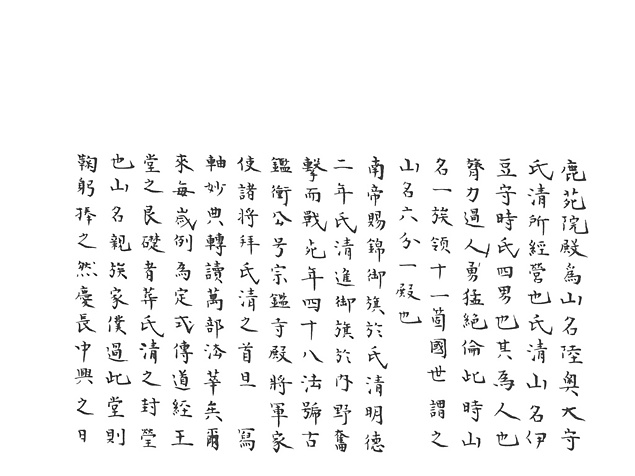 鹿苑院殿為山名陸奥大守
氏清所経營也氏清山名伊
豆守時氏四男也其為人也
膂力過人勇猛絶倫此時山
名一族領十一箇國世謂之
山名六分一殿也
南帝賜錦御旗於氏清明德
二年氏清進御旗於内野奮
擊而戰死年四十八法號古
鑑衡公号宗鑑寺殿將軍家
使諸將拜氏清之首且 寫
軸妙典轉讀萬部法華矣爾
來每歲例為定式傳道經王
堂之艮礎者葬氏清之封瑩
也山名親族家僕過此堂則
鞠躬捧之然慶長中興之日